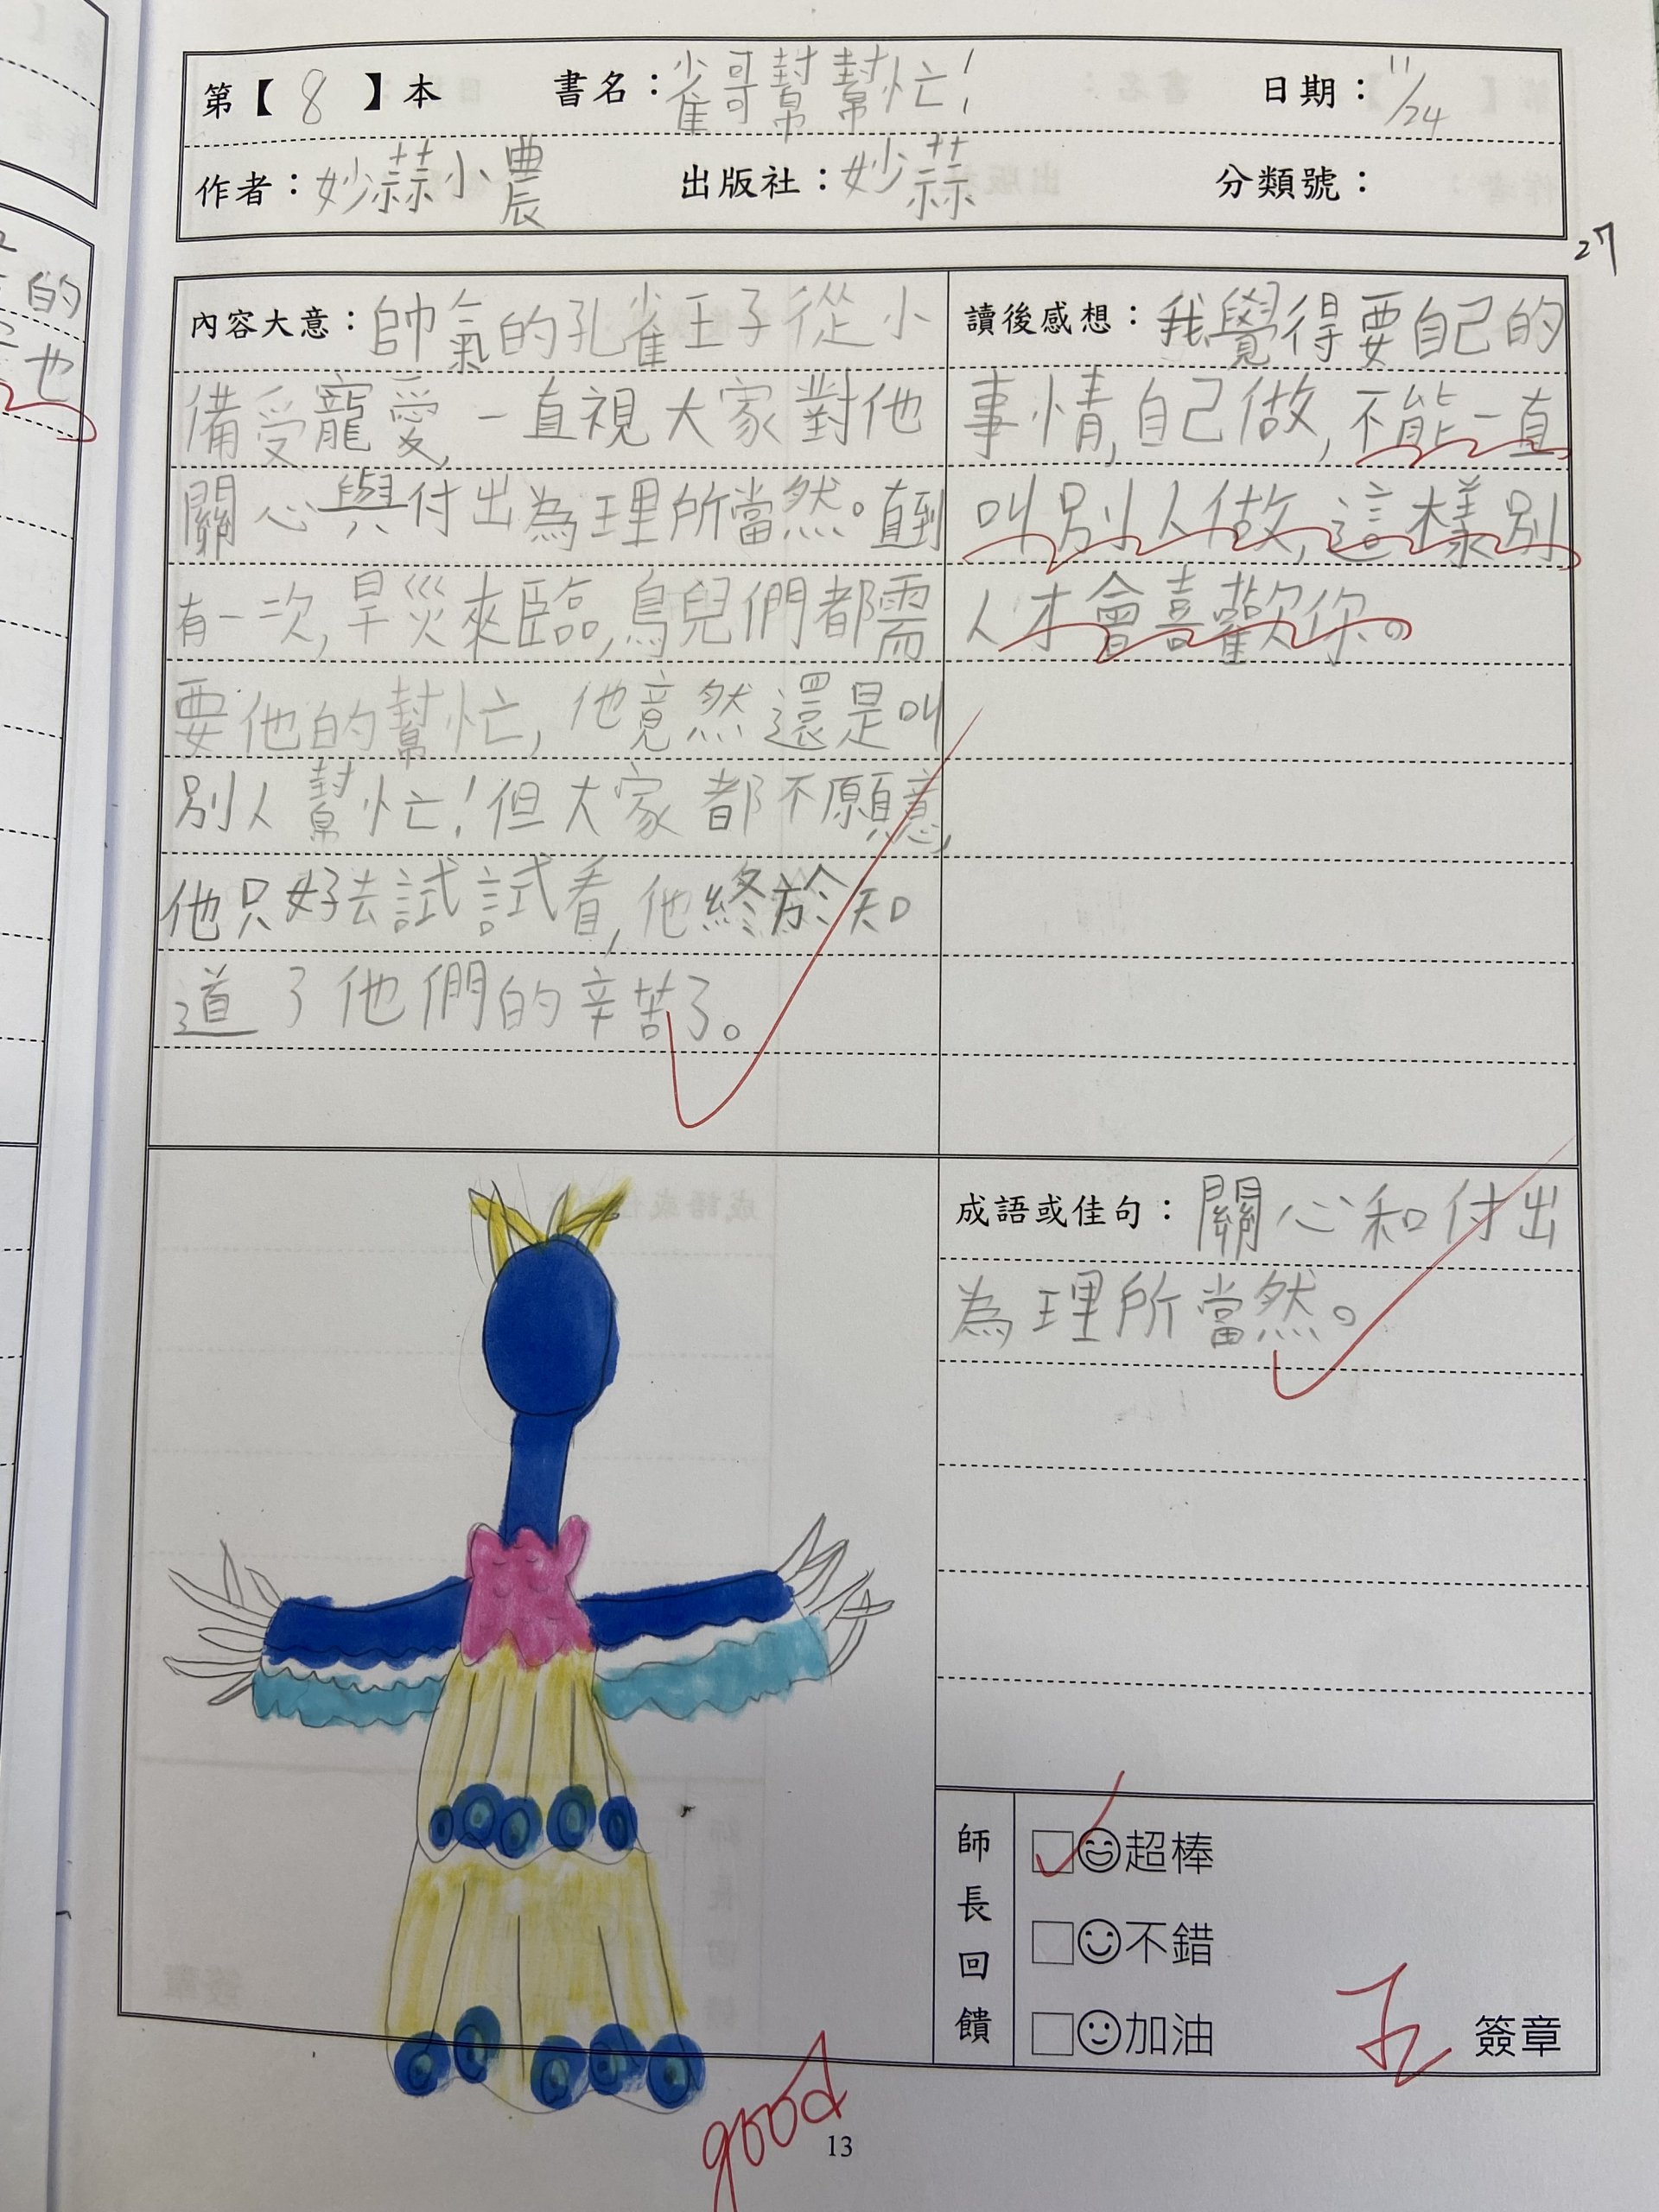 第【 8 】本 書名：雀哥幫幫忙！ 日期：11/24
作者：妙蒜小農 出版社：妙蒜 分類號：
27
內容大意：帥氣的孔雀王子從小
備受寵愛，一直視大家對他
關心與付出為理所當然。直到
有一次，旱災來臨，鳥兒們都需
要他的幫忙，他竟然還是叫
別人幫忙！但大家都不願意，
他只好去試試看，他終於知
道了他們的辛苦了。
讀後感想：我覺得要自己的
事情，自己做，不能一直
叫別人做，這樣別
人才會喜歡你。
成語或佳句：關心和付出
為理所當然。
師長回饋
超棒
不錯
加油
簽章
good
13
的
也